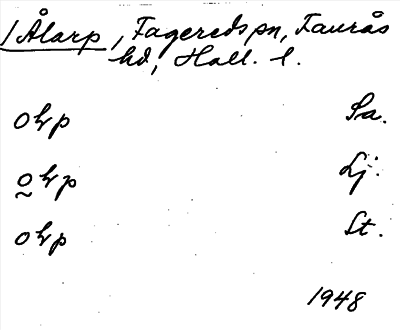 /Ålarp, Fagereds sn, Faurås
hd, Hall. l.
o lr p Sa.
o̰ lr p Lj.
o lr p St.
1948